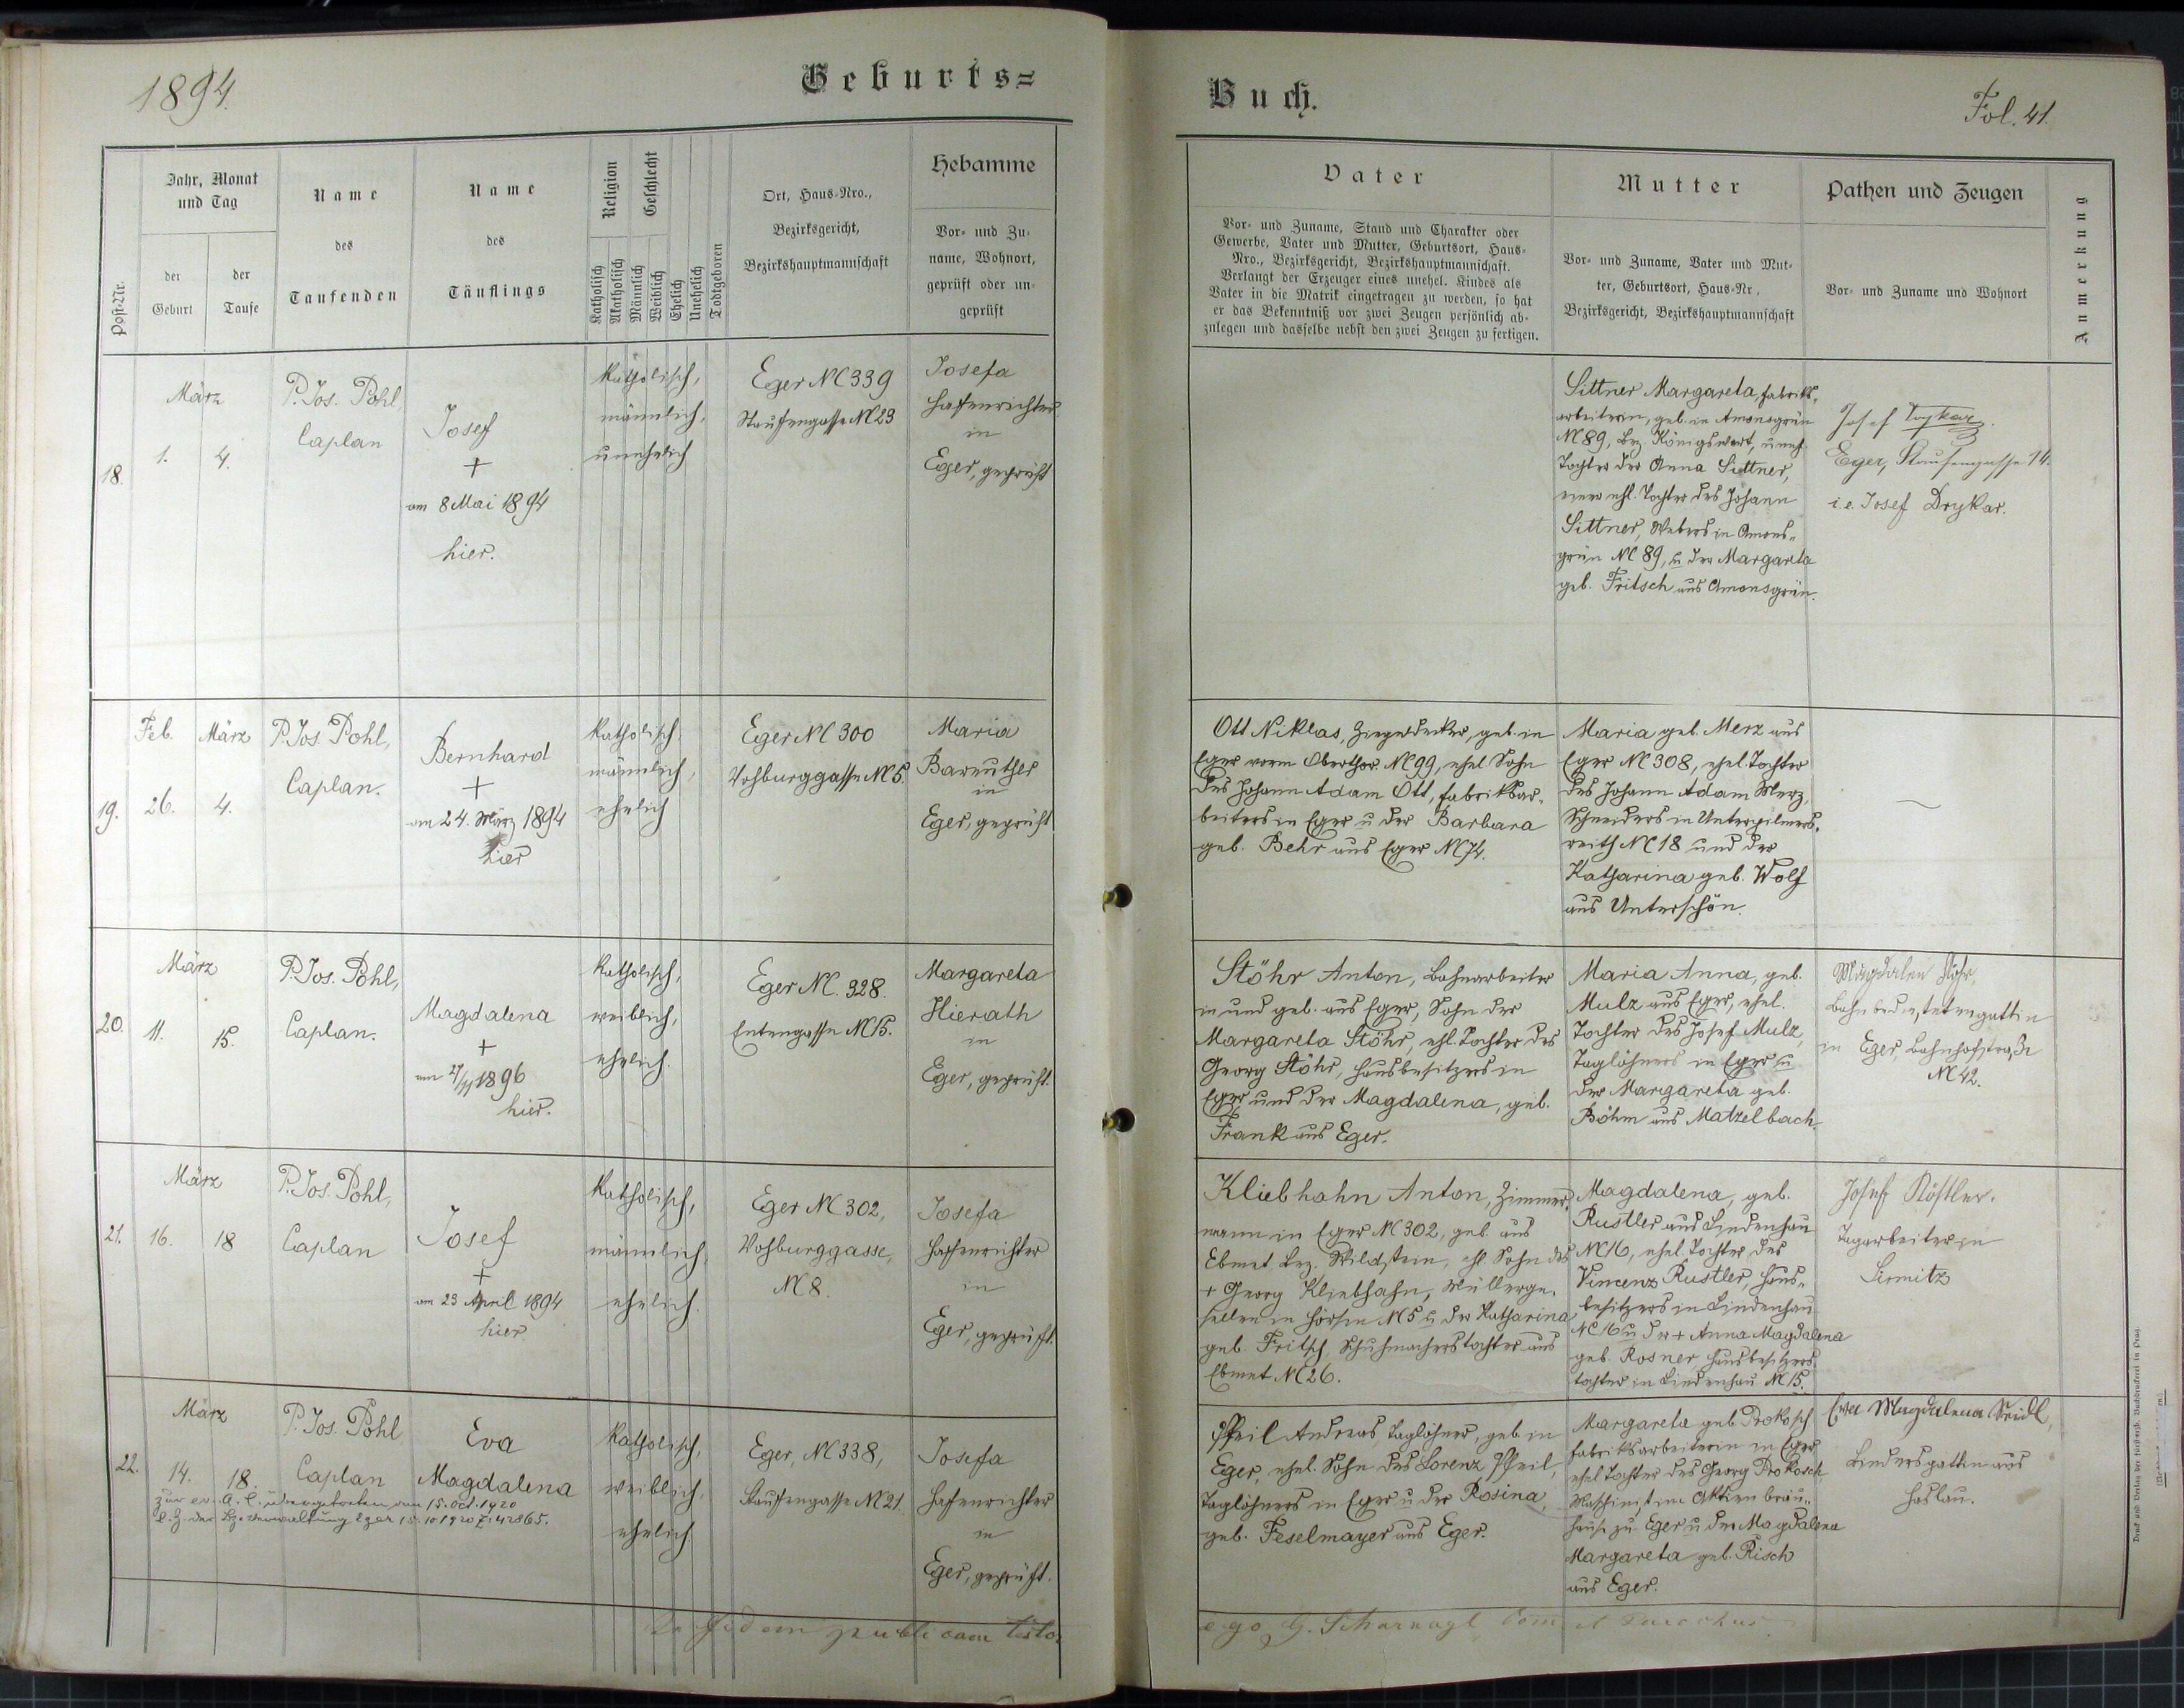 1894.
Geburts=
Buch.
Fol. 41.
Post-Nr.
Jahr, Monat
und Tag
der
Geburt
der
Taufe
Name
des
Taufenden
Name
des
Täuflings
Religion
Geschlecht
Katholisch
Akatholisch
Männlich
Weiblich
Ehelich
Unehelich
Todtgeboren
Ort, Haus-Nro.,
Bezirksgericht,
Bezirkshauptmannschaft
Hebamme
Vor- und Zu-
name, Wohnort,
geprüft oder un-
geprüft
Vater
Vor- und Zuname, Stand und Charakter oder
Gewerbe, Vater und Mutter, Geburtsort, Haus-
Nro., Bezirksgericht, Bezirkshauptmannschaft.
Verlangt der Erzeuger eines unehel. Kindes als
Vater in die Matrik eingetragen zu werden, so hat
er das Bekenntniß vor zwei Zeugen persönlich ab-
zulegen und dasselbe nebst den zwei Zeugen zu fertigen.
Mutter
Vor- und Zuname, Vater und Mut-
ter, Geburtsort, Haus-Nr.,
Bezirksgericht, Bezirkshauptmannschaft
Pathen und Zeugen
Vor- und Zuname und Wohnort
Anmerkung
18.
März
1. 4.
P. Jos. Pohl,
Caplan
Josef
+
am 8 Mai 1894
hier.
katholisch,
männlich,
unehelich
Eger NC 339
Staufengasse N 23
Josefa
Hafenrichter
in
Eger, geprüft
Sittner Margareta, Fabriks-
arbeiterin, geb. in Amonsgrün
NC 89, Bez. Königswart, unehl.
Tochter der Anna Sittner,
einer ehl. Tochter des Johann
Sittner, Webers in Amons-
grün NC 89, u der Margareta
geb. Fritsch aus Amonsgrün.
Josef
Eger, Staufengasse 14.
i.e. Josef Drykar.
19.
Feb. März
26. 4.
P. Jos. Pohl,
Caplan.
Bernhard
+
am 24. März 1894
hier
katholisch,
männlich,
ehelich
Eger NC 300
Vohburggasse N 5.
Maria
Bareuther
in
Eger, geprüft
Ott Niklas, Ziegeldecker, geb. in
Eger vorm Oberthor NC 99, ehel Sohn
des Johann Adam Ott, Fabriksar-
beiters in Eger u der Barbara
geb. Behr aus Eger NC 74.
Maria geb. Merz aus
Eger NC 308, ehel. Tochter
des Johann Adam Merz,
Schneiders in Unterpilmers-
reith NC 18 und der
Katharina geb. Wolf
aus Unterschön.
20.
März
11. 15.
P. Jos. Pohl,
Caplan.
Magdalena
+
am 27/11 1896
hier.
katholisch,
weiblich,
ehelich.
Eger NC. 328.
Entengasse N 15.
Margareta
Hierath
in
Eger, geprüft.
Stöhr Anton, Bahnarbeiter
in und geb. aus Eger, Sohn der
Margareta Stöhr, ehl. Tochter des
Georg Stöhr, Hausbesitzers in
Eger und der Magdalena, geb.
Frank aus Eger.
Maria Anna, geb.
Mulz aus Eger, ehel.
Tochter des Josef Mulz,
Taglöhners in Eger u
der Margareta geb.
Böhm aus Matzelbach.
Magdalena Stöhr,
Bahnbedienstetengattin
in Eger, Bahnhofstraße
N 42.
21.
März
16. 18
P. Jos. Pohl,
Caplan
Josef
+
am 23 April 1894
hier.
katholisch,
männlich,
ehelich.
Eger NC 302,
Vohburggasse,
N 8.
Josefa
Hafenrichter
in
Eger, geprüft.
Kliebhahn Anton, Zimmer-
mann in Eger NC 302, geb. aus
Ebmet Bez. Wildstein, ehl. Sohn des
+ Georg Kliebhahn, Müllerge-
sellen in Hörsin N 5 u der Katharina
geb. Fritsch, Schuhmacherstochter aus
Ebmet NC 26.
Magdalena, geb.
Rustler aus Lindenhau
NC 16, ehel. Tochter des
Vincenz Rustler, Haus-
besitzers in Lindenhau
NC 16 u der + Anna Magdalena
geb. Rosner, Hausbesitzers-
tochter in Lindenhau NC 15.
Josef Köstler.
Tagarbeiter in
Sirmitz
22.
März
14. 18.
P. Jos. Pohl
Caplan
Eva
Magdalena
zur ev. A. C. übergetreten am 15. Oct. 1920
Eger 15.10 1920 Z. 42865.
katholisch,
weiblich,
ehelich.
Eger, NC 338,
Staufengasse N 21.
Josefa
Hafenrichter
in
Eger, geprüft.
Pfeil Andreas, Taglöhner, geb. in
Eger, ehel. Sohn des Lorenz Pfeil,
Taglöhners in Eger u der Rosina,
geb. Feselmayer aus Eger.
Margareta geb. Prokosch
Fabriksarbeiterin in Eger,
ehel Tochter des Georg Prokosch
Maschinist im Aktien bräu-
hause zu Eger u der Magdalena
Margareta geb. Risch
aus Eger.
Eva Magdalena Seidl,
Bindersgattin aus
Haslau.
In fidem publicam testor
ego G. Scharnagl Com. et Parochus
Druck und Verlag der fürsterzb. Buchdruckerei in Prag.